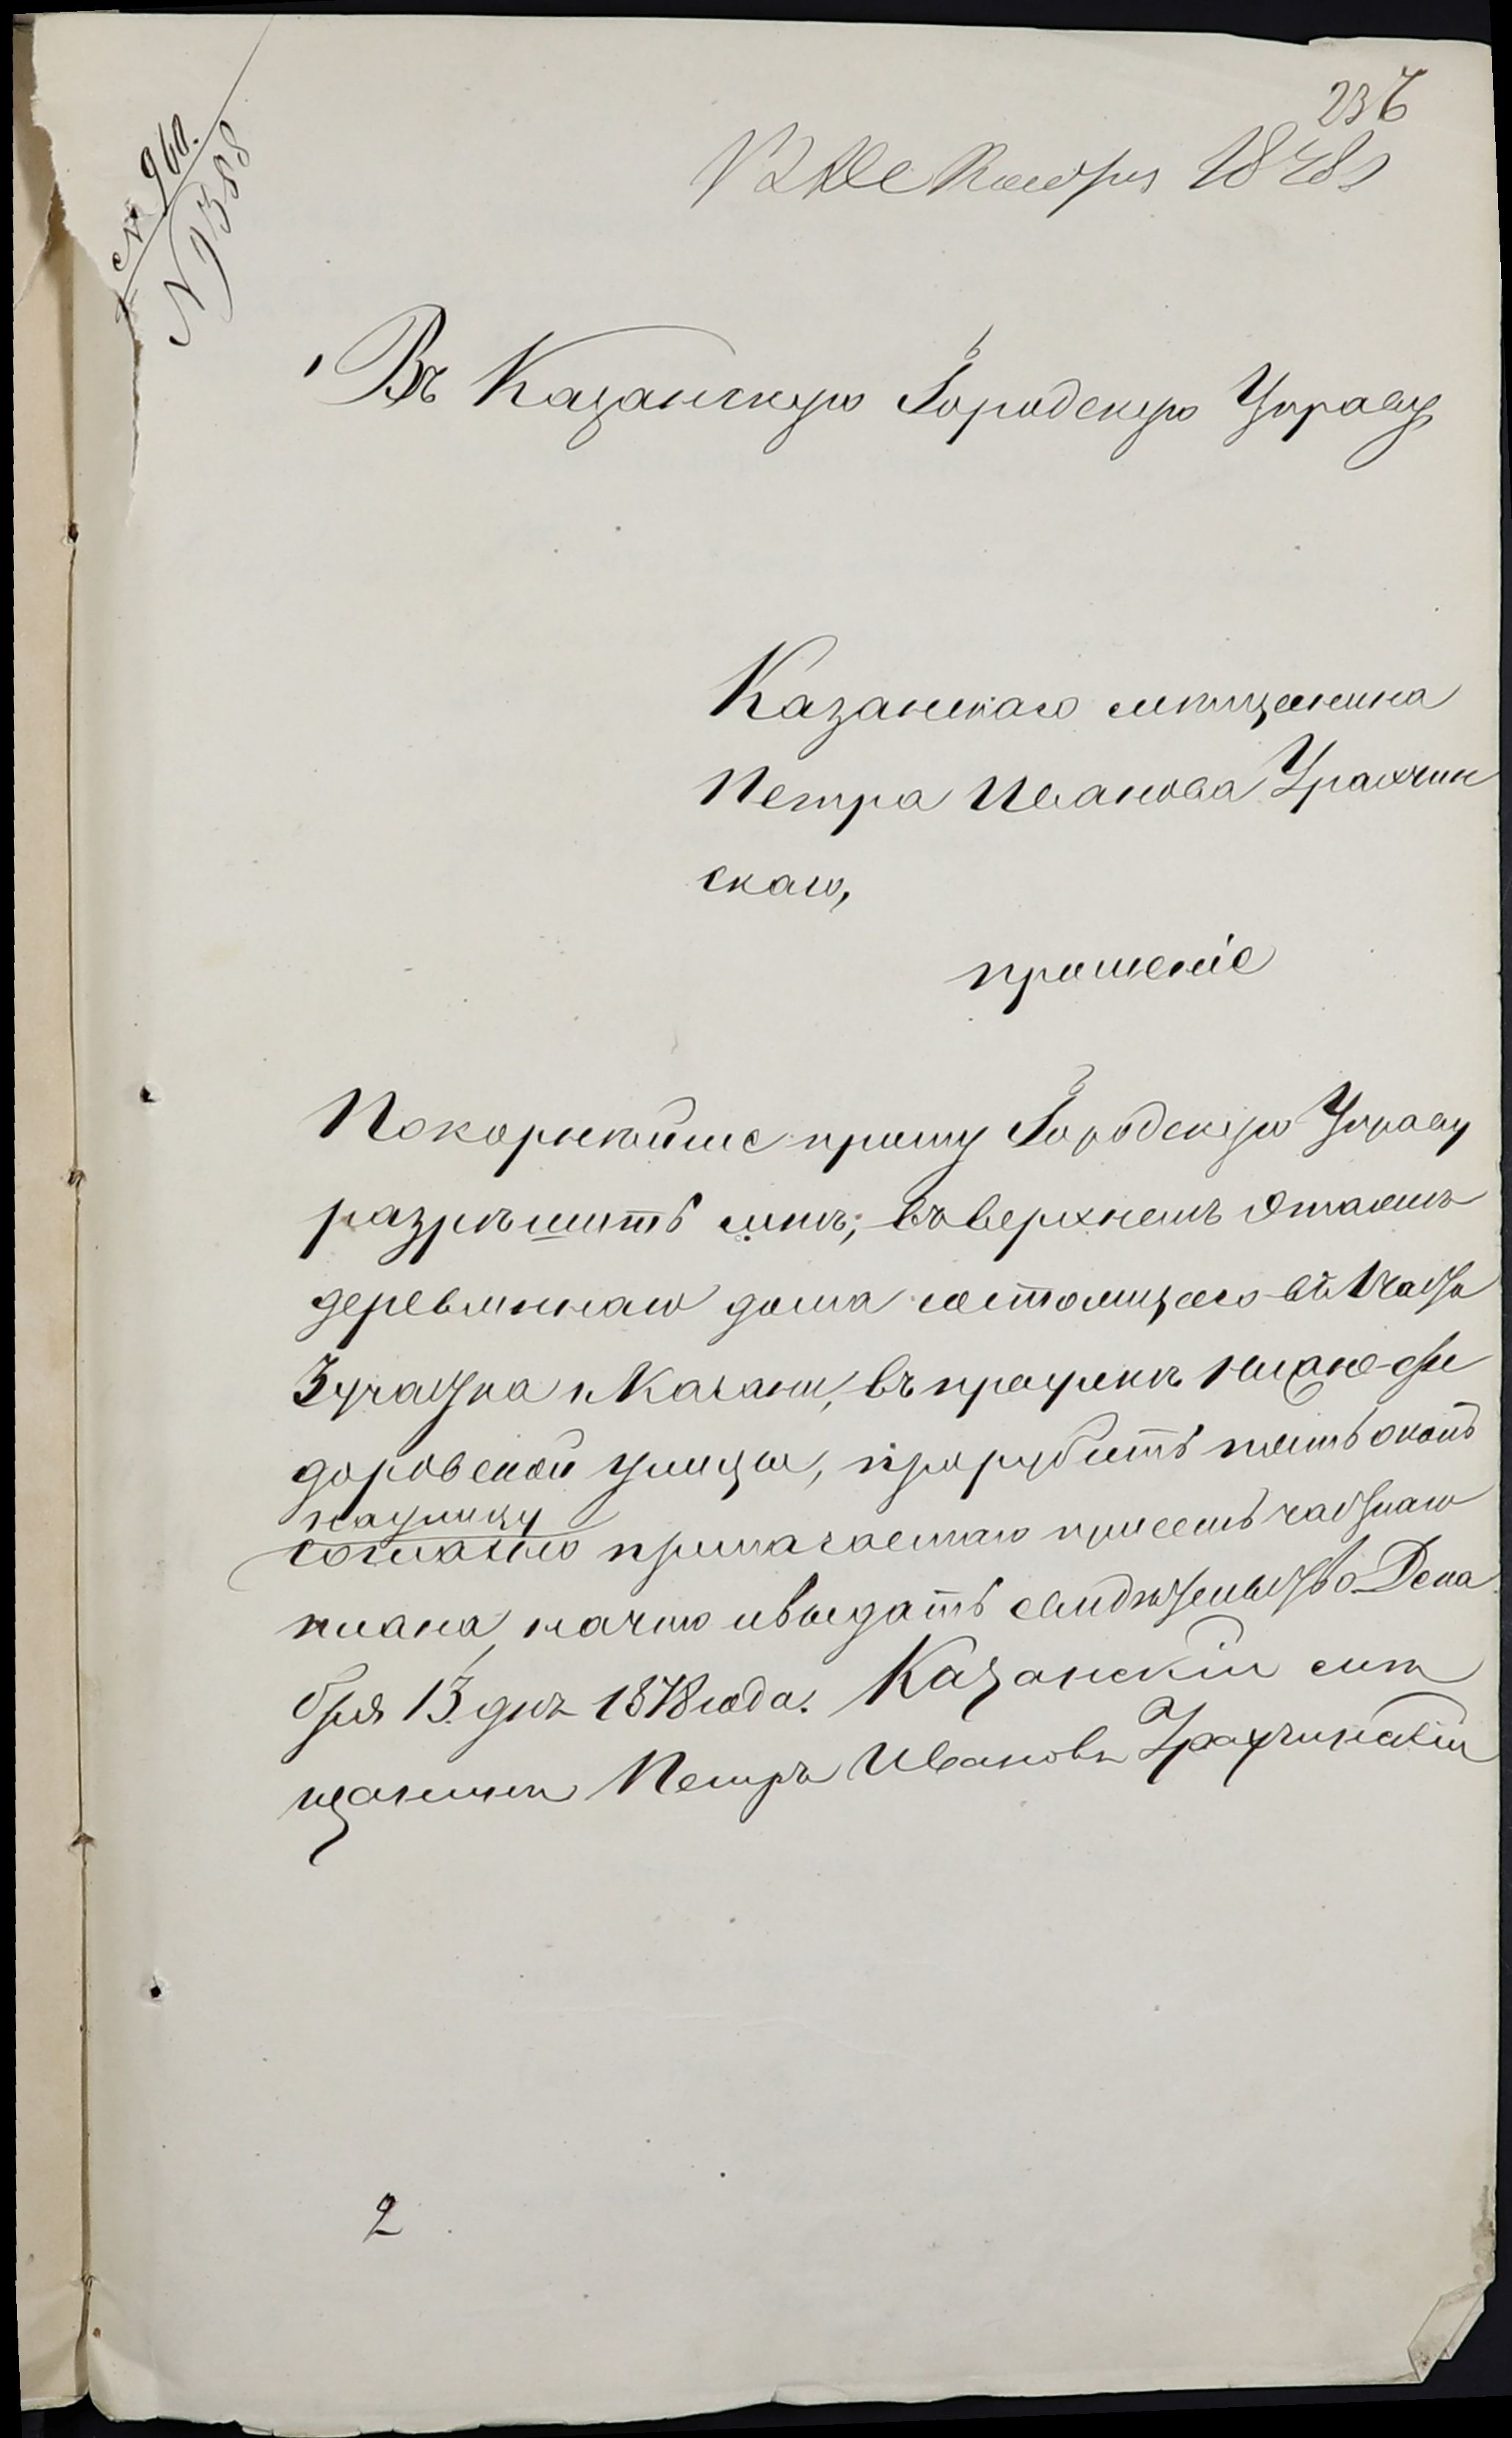 236
№ 960.
N 9388
12 Декабря 1878 г
Въ Казанскую Городскую Управу
Казанскаго мѣщанина
Петра Иванова Урахчин
скаго,
прошеніе
Покорнѣйше прошу Городскую Управу
разрѣшить мнѣ, въ верхнемъ этажѣ
деревяннаго дома состоящаго въ 1 части
3 участка г. Казани, въ проулкѣ Нижне-Фе
доровской улицы, прорубить пять оконъ
на улицу
согласно прилагаемаго при семъ частнаго
плана, на что и выдать свидѣтельство Дека
бря 13 дня 1878 года. Казанскій мѣ
щанинъ Петръ Ивановъ Урахчинскій
2